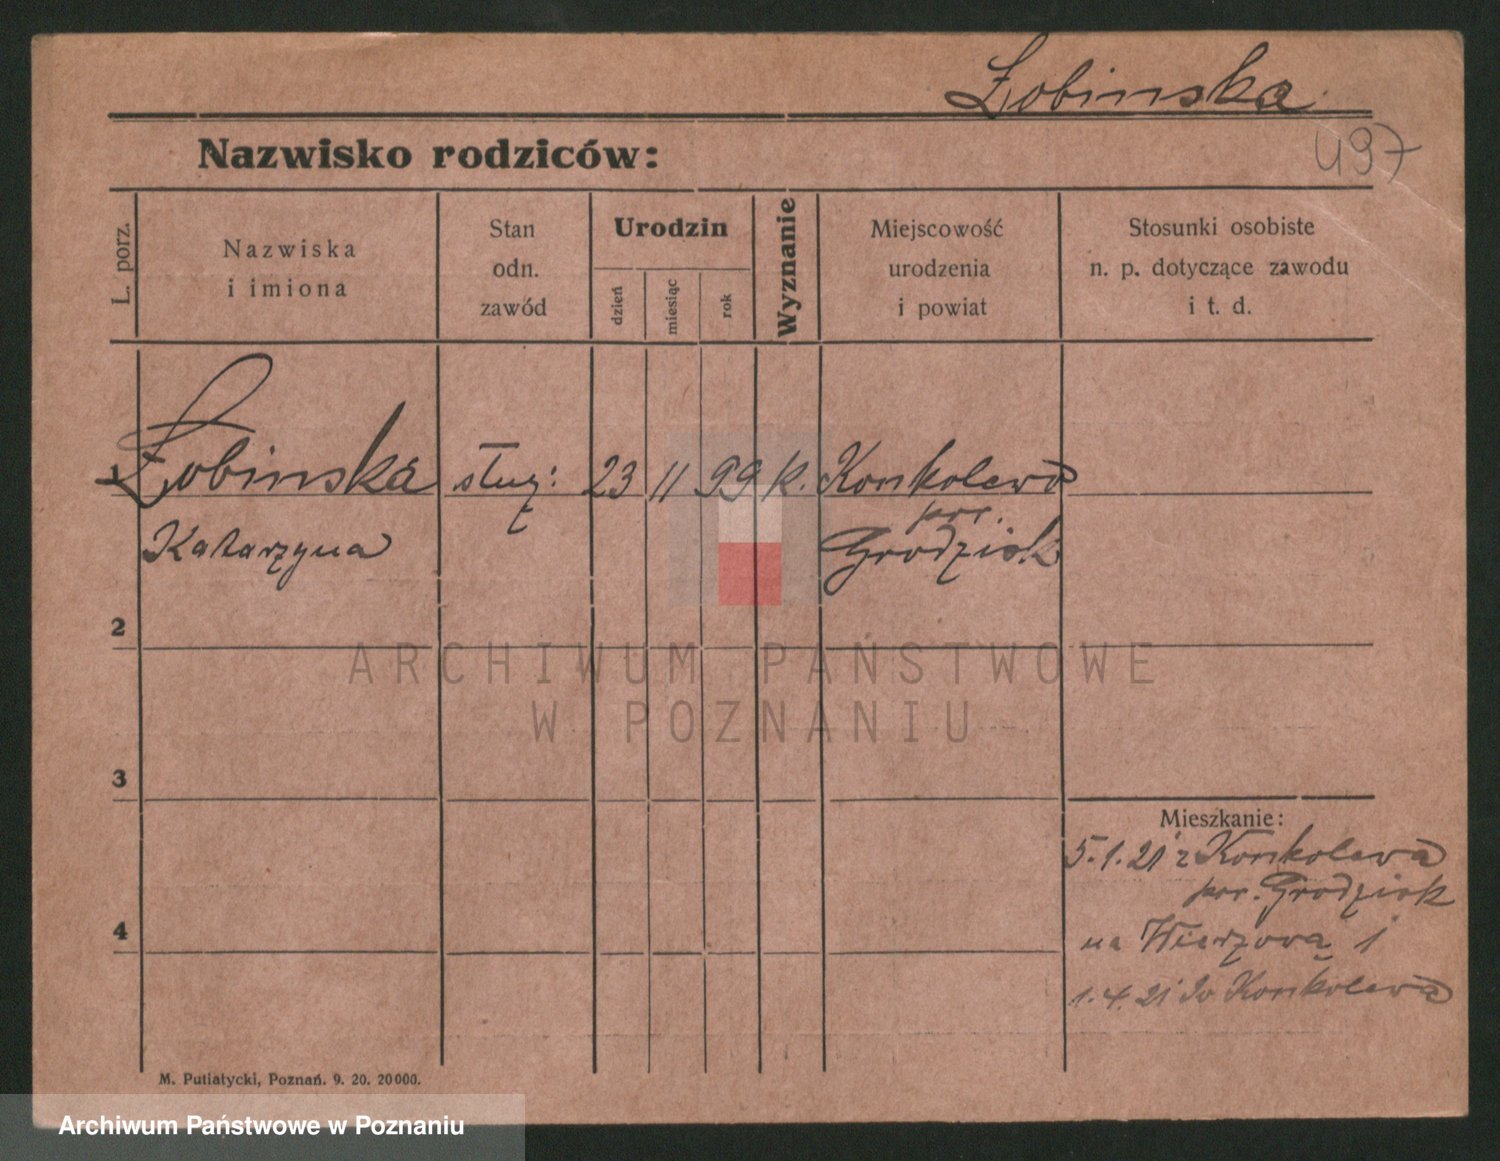 Łobinska
497
Nazwisko rodziców:
L. porz.
Nazwiska
i imiona
Stan
odn.
zawód
Urodzin
dzień
miesiąc
rok
Wyznanie
Miejscowość
urodzenia
i powiat
Stosunki osobiste
n. p. dotyczące zawodu
i t. d.
1
Łobinska służ: 23 11 99 k. Konkolewo
pow.
Katarzyna Grodzisk
2
ARCHIWUM PAŃSTWOWE
W POZNANIU
3
Mieszkanie:
5.1.21 z Konkolewa
pow. Grodzisk
4
na Wierzbową 1
1.4.21 do Konkolewa
M. Putiatycki, Poznań. 9. 20. 20000.
Archiwum Państwowe w Poznaniu